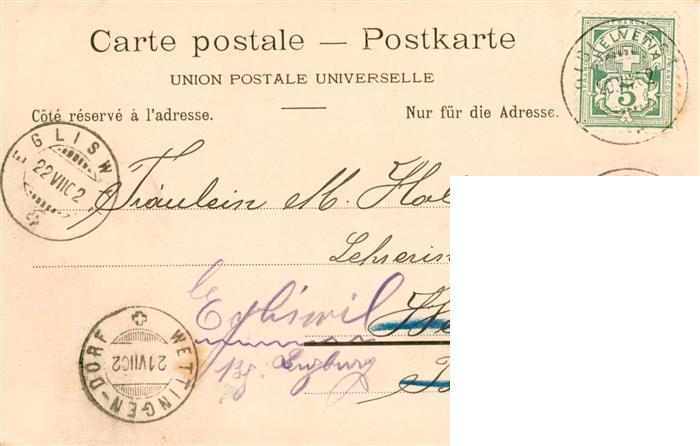 Carte postale — Postkarte
UNION POSTALE UNIVERSELLE
Côté réservé à l'adresse.
Nur für die Adresse.
HELVETIA
5
EGLISW
22 VII 02
Fräulein M.
Lehrerin
Egliswil
Bz. Lenzburg
WETTINGEN-DORF
21 VII 02